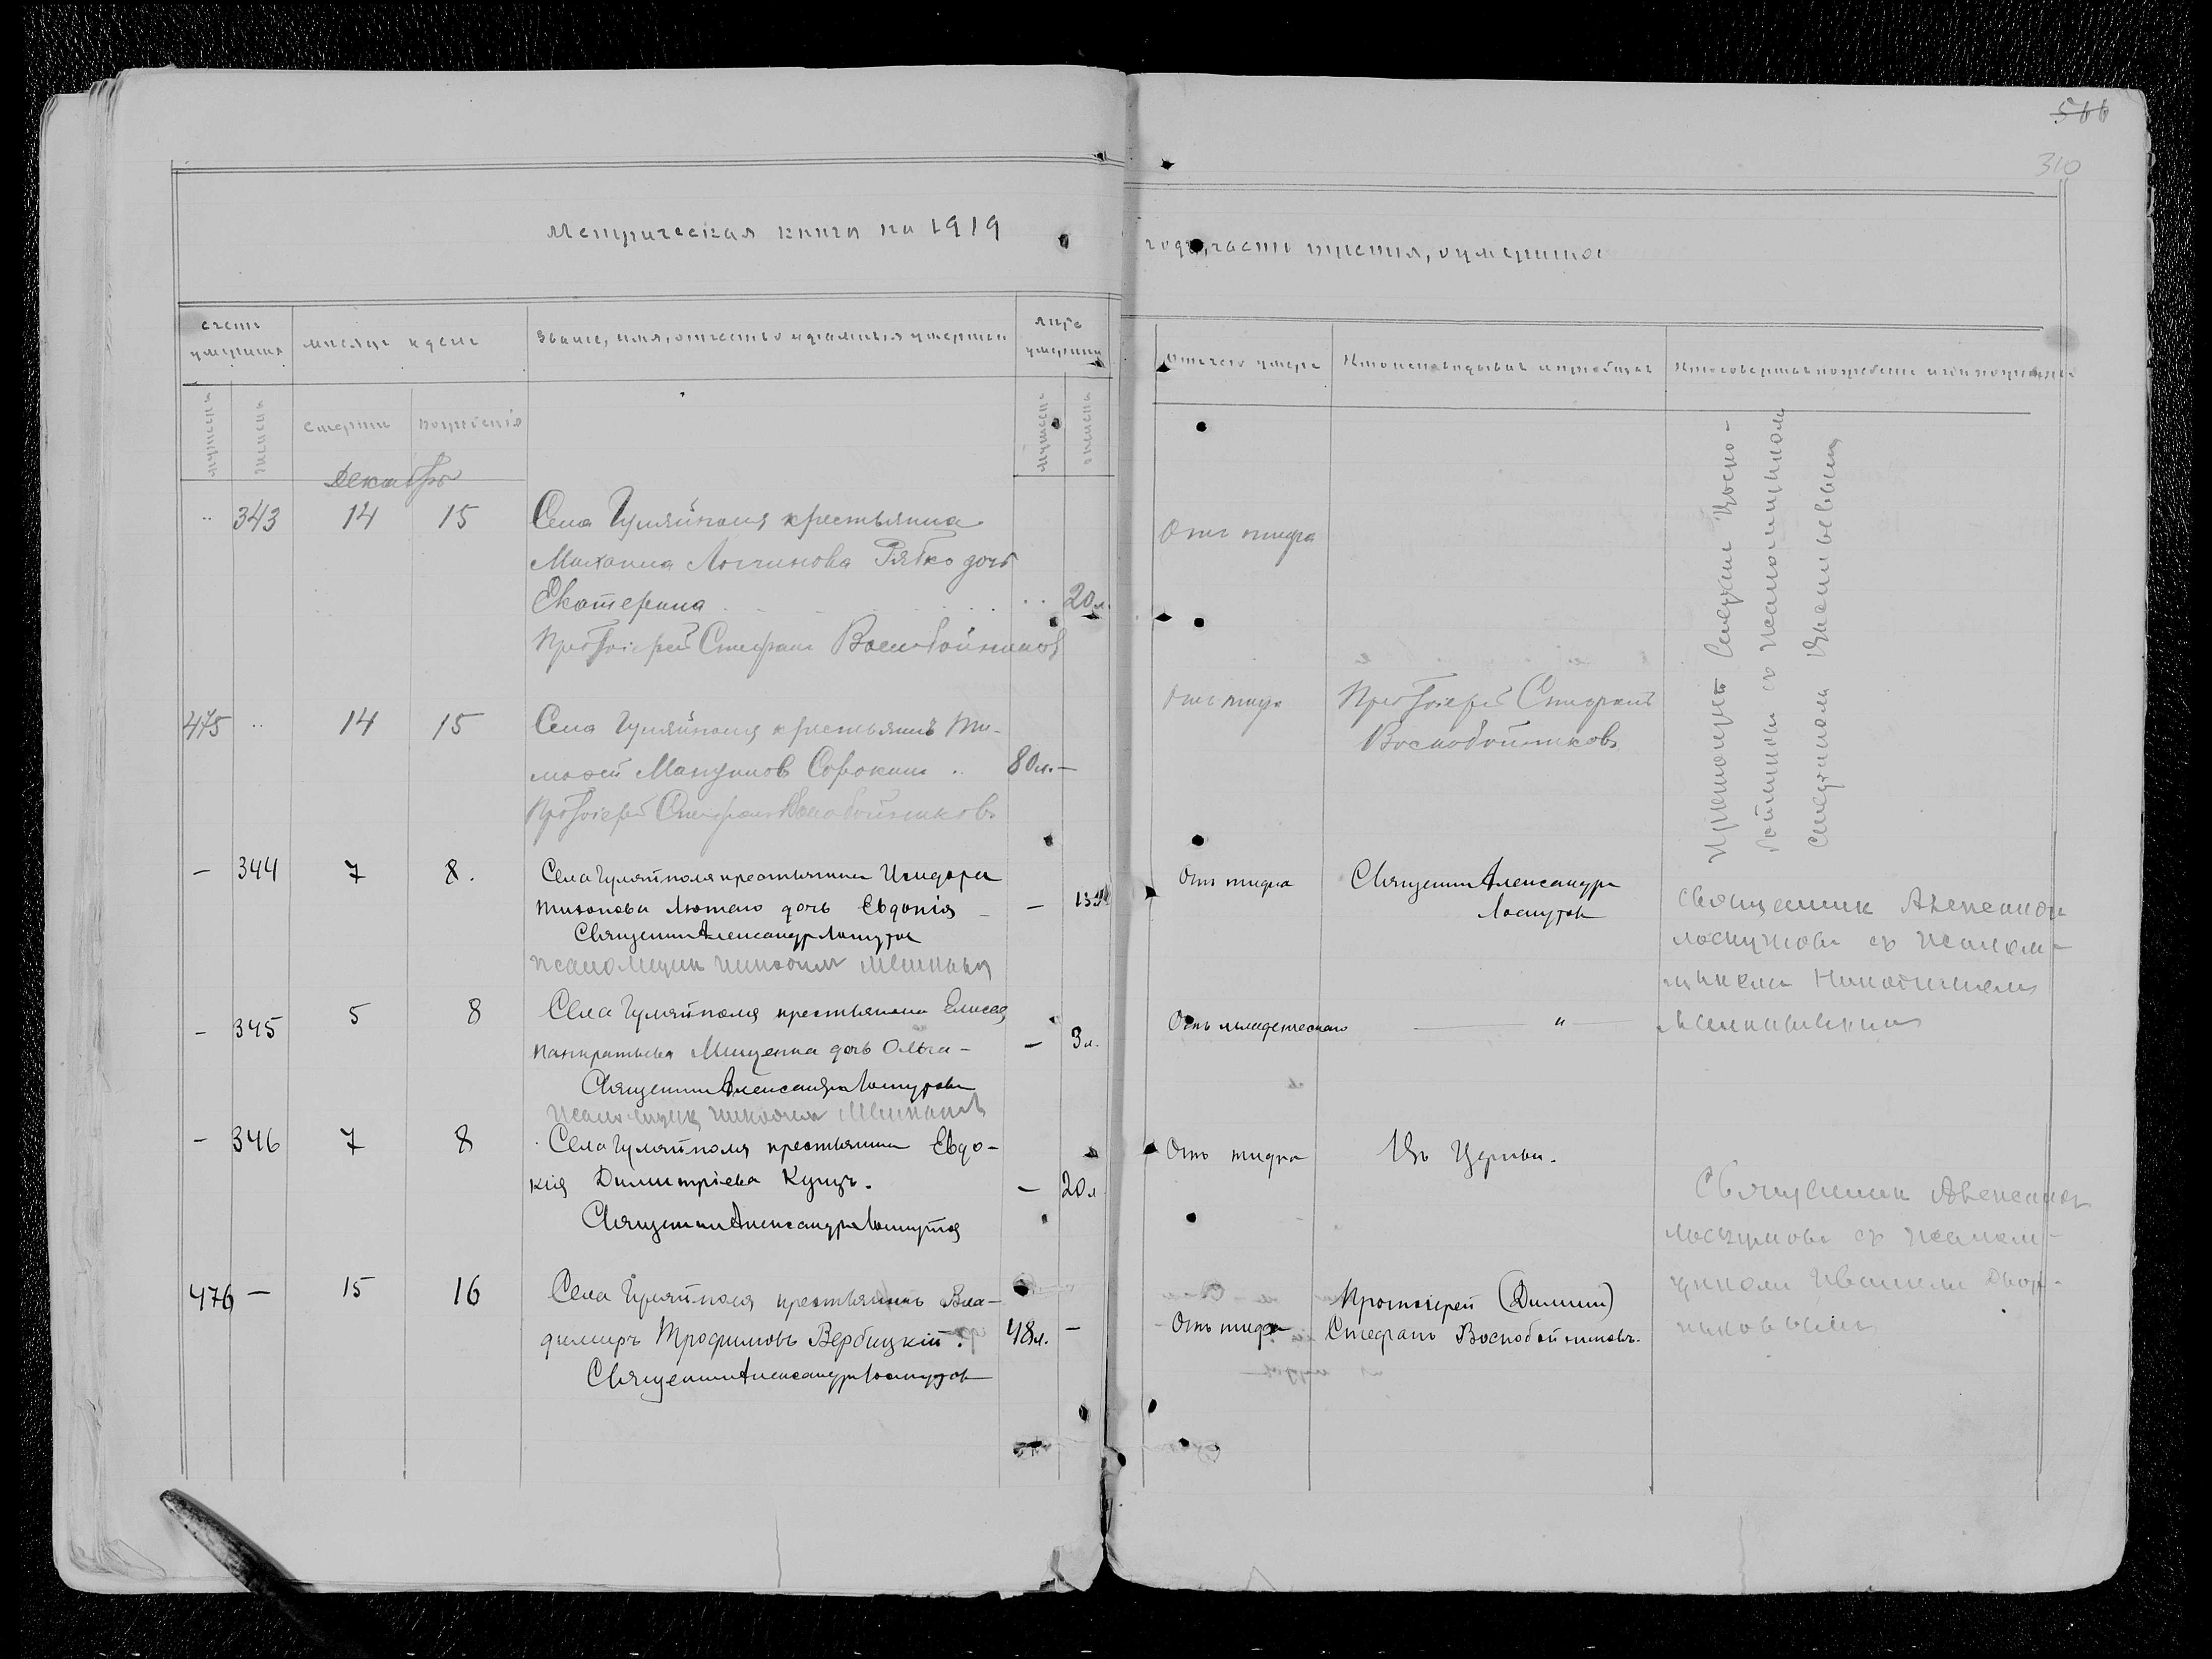 566
310
Метрическая книга на 1919
года, часть третья, о умерших
Счетъ умершихъ
Месяцъ и день
Званіе, имя, отчество и фамилія умершихъ
Лета умершихъ
Отъ чего умеръ
Кто исповедывалъ и пріобщалъ
Кто совершалъ погребеніе и где погребены
мужеска
женска
смерти
погребенія
мужеска
женска
Декабрь
343 14 15 Села Гуляйполя крестьянина
Михаила Логгинова Рябко дочь
Екатерина 20 л.
Протоіерей Стефанъ Воскобойниковъ
Отъ тифа
Протоіерей Стефанъ Воско-
бойниковъ съ псаломщикомъ
475 14 15 Села Гуляйполя крестьянинъ Ти-
мофей Сорокинъ 80 л. —
Протоіерей Стефанъ Воскобойниковъ
Отъ тифа
Протоіерей Стефанъ
Воскобойниковъ
— 344 7 8. Села Гуляйполя крестьянина Исидора
Тихонова Лютаго дочь Евдокія — — 13 л.
Священникъ Александръ Лоскутовъ
псаломщикъ Никодим
Отъ тифа
Священникъ Александръ
Лоскутовъ
Священник Александр
Лоскутовъ съ псалом-
щикомъ Никодимомъ
— 345 5 8 Села Гуляйполя крестьянина Елисея
Панкратьева Мищенка дочь Ольга — — 3 л.
Священникъ Александръ Лоскутовъ
псаломщик Никодим
Отъ младенческаго
— " —
— 346 7 8 Села Гуляйполя крестьянка Евдо-
кія Димитріева Куцъ. — 20 л.
Священникъ Александръ Лоскутовъ
Отъ тифа
Въ Церкви.
Священник Александр
Лоскутовъ съ псалом-
щикомъ Иваномъ
476 — 15 16 Села Гуляйполя крестьянинъ Вла-
димиръ Трофимовъ Вербицкій. 48 л. —
Священникъ Александръ Лоскутовъ
Отъ тифа
Протоіерей
Стефанъ Воскобойниковъ.